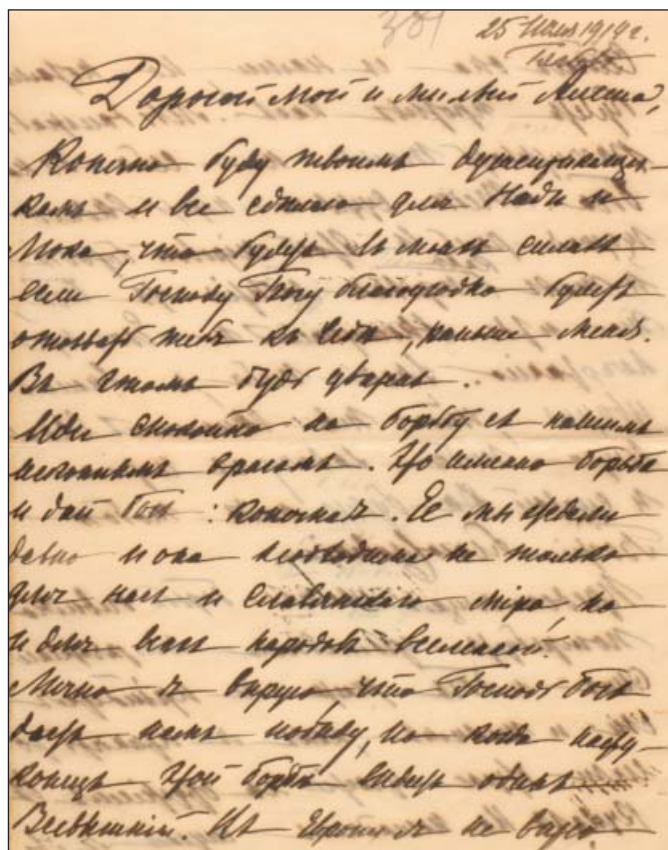 381
25 Июля 1914 г.
Дорогой мой и милый Алеша,
Конечно буду твоимъ душеприкащи-
комъ и все сделаю для Нади и
Мока, что будетъ въ моихъ силахъ
если Господу Богу благоугодно будетъ
отозвать тебя къ Себѣ, раньше меня.
Въ этомъ будь уверенъ.
Иди спокойно на борьбу съ нашимъ
исконнымъ врагомъ. Это именно борьба
и дай Богъ: конечная. Ее мы ждали
давно и она необходима не только
для насъ и Славянскаго міра, но
и для всехъ народовъ вселенной.
Лично я верую, что Господь Богъ
дастъ намъ победу, но когда
конецъ этой борьбы ведаетъ одинъ
Всевышній. Въ Европе я не вижу